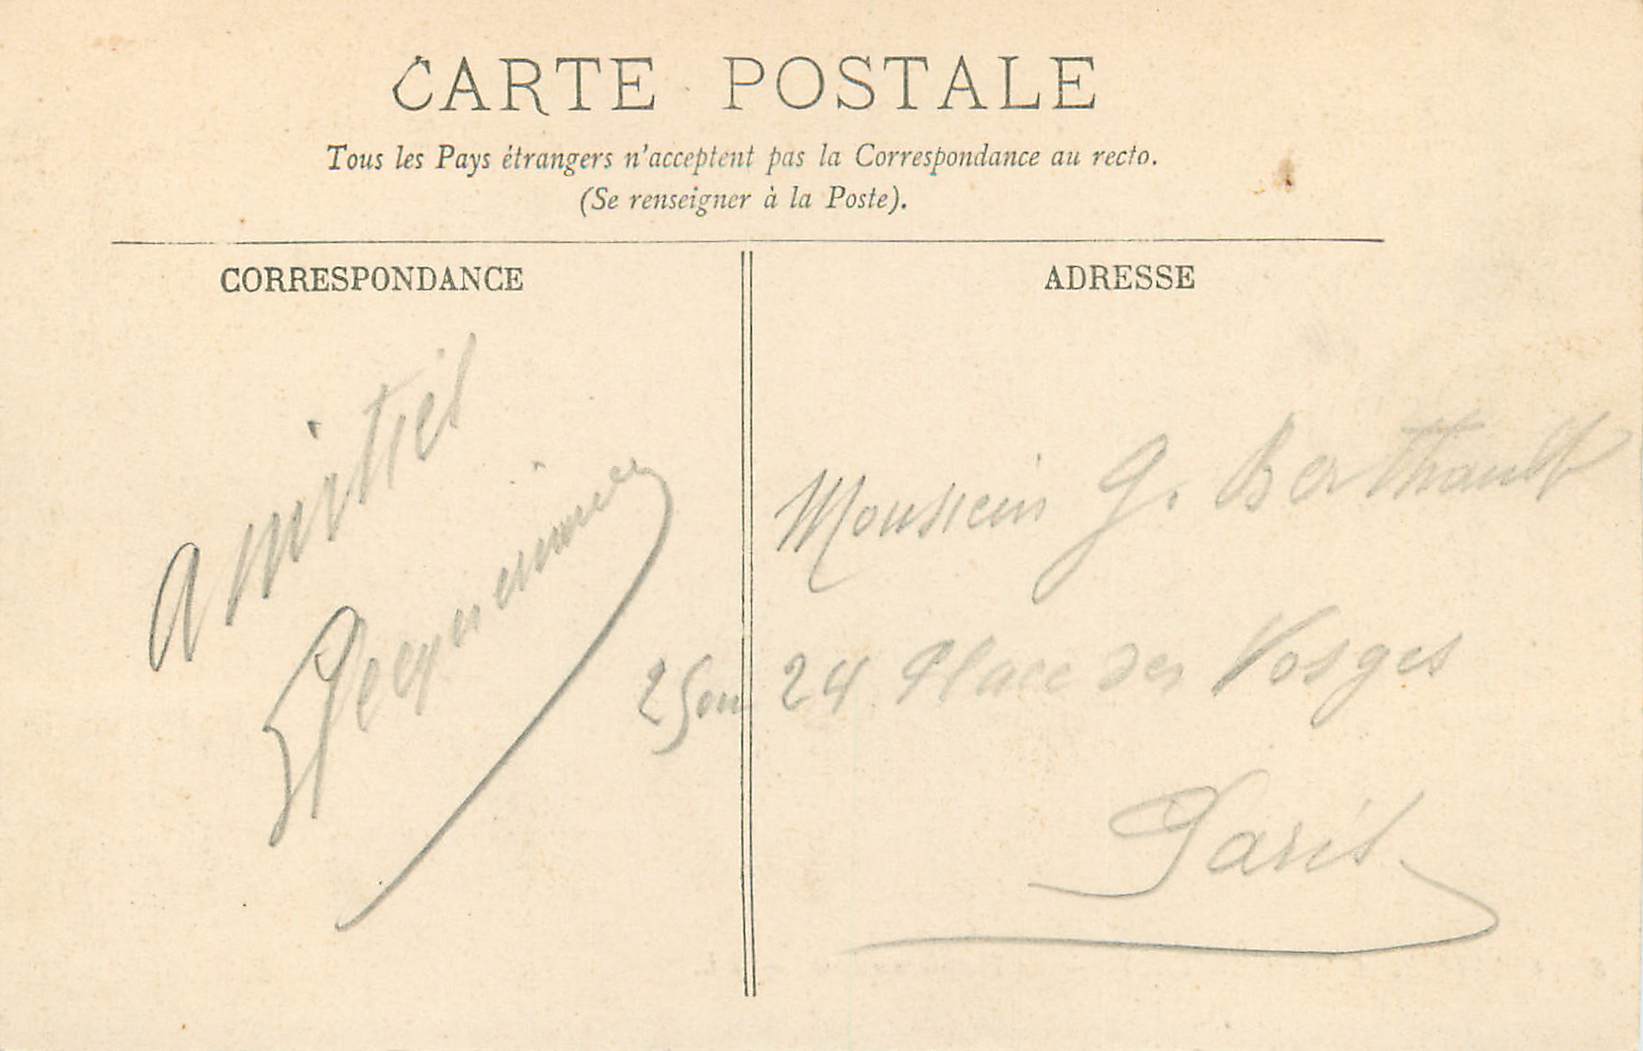 CARTE POSTALE
Tous les Pays étrangers n'acceptent pas la Correspondance au recto.
(Se renseigner à la Poste).
CORRESPONDANCE
Amitiés
ADRESSE
Monsieur G. Berthault
25 ou 24 Place des Vosges
Paris